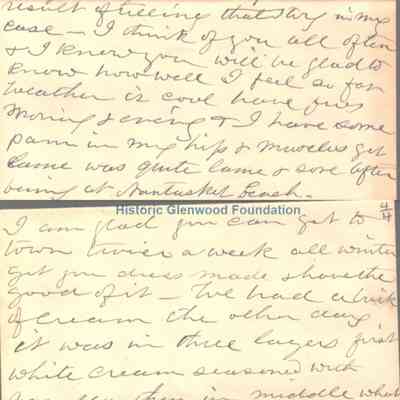 result of telling that story in my
case - I think of you all often
& I know you will be glad to
know how well I feel so far
weather is cool have fires
morning & evening & I have some
pain in my hips & muscles get
lame was quite lame & sore after
being at Nantasket beach.
Historic Glenwood Foundation
4/4
I am glad you can get to
town twice a week all winter
get you dress made & have the
good of it - We had a brick
of cream the other day
it was in three layers first
white cream seasoned with
then in middle what